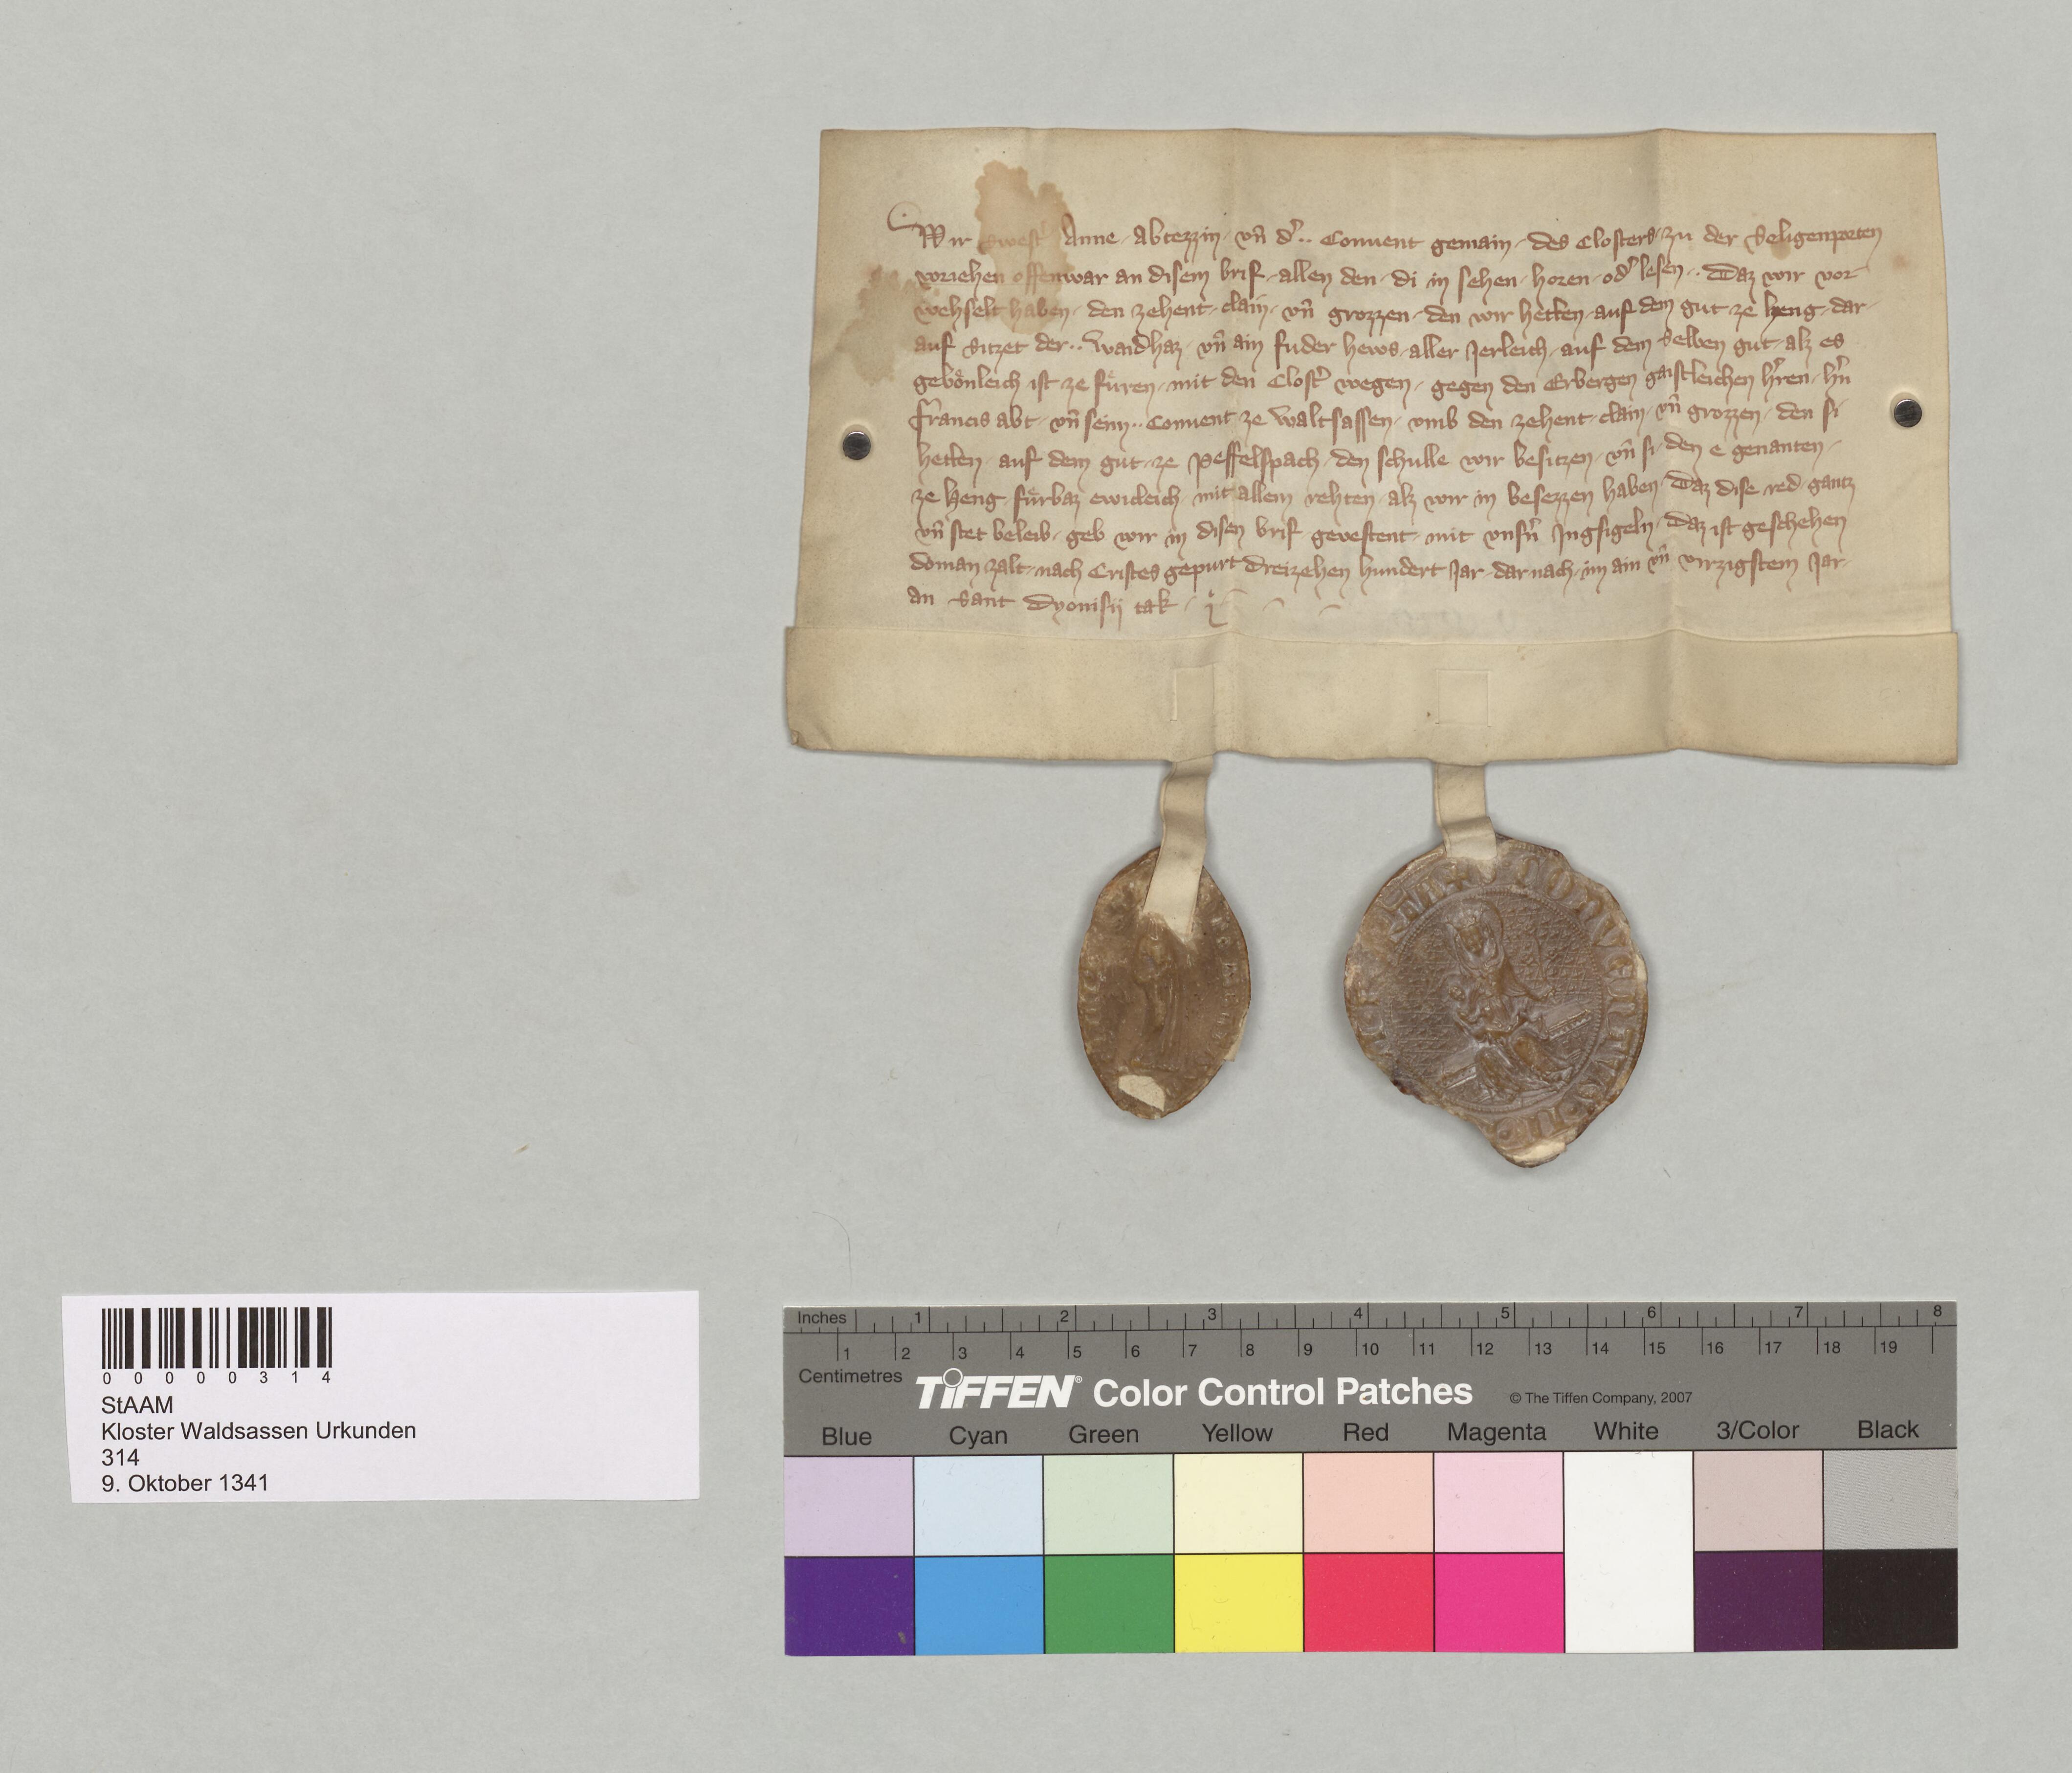 Wir Swest̉ Anne · Abtezzin · vn̄ d̉ ·· Conuent gemain · des Closters · zu der Seligenporten
voriehen offenwar an disem brif · allen den · di in sehen · horen · od̉ lesen ·· Daz wir vor
wehselt haben · den zehent · clain · vn̄ grozzen · den wir hetten · auf dem gut · ze heng · dar
auf Sitzet der ·· Waidhaz · vn̄ ain fuder hews · aller Jerleich · auf dem Selben gut · alz es
gebönleich ist · ze füren · mit den Clost̉ wegen · gegen den Erbergen gaistleichen h̉ren · h̉n
Francis abt · vn̄ seinn ·· Conuent · ze Waltsassen · vmb den zehent · clain · vn̄ grozzen · den si
hetten · auf dem gut · ze Peffelspach · den schulle wir besitzen · vn̄ si · den e genanten ·
ze Heng · fürbaz ewicleich · mit allem rehten · alz wir in besezzen haben · Daz dise red · gantz
vn̄ stet beleib · geb wir in disen brif geuestent · mit vnsn̉ Jngsigeln · Daz ist geschehen
doman zalt · nach Cristes gepurt Dreizehen hundert Jar · dar nach · im ain vn̄ virzigstem Jar ·
an Sant Dyonisij tak
CONVENT
0 0 0 0 0 3 1 4
StAAM
Kloster Waldsassen Urkunden
314
9. Oktober 1341
Inches 1 2 3 4 5 6 7 8
1 2 3 4 5 6 7 8 9 10 11 12 13 14 15 16 17 18 19
Centimetres
TIFFEN® Color Control Patches © The Tiffen Company, 2007
Blue Cyan Green Yellow Red Magenta White 3/Color Black